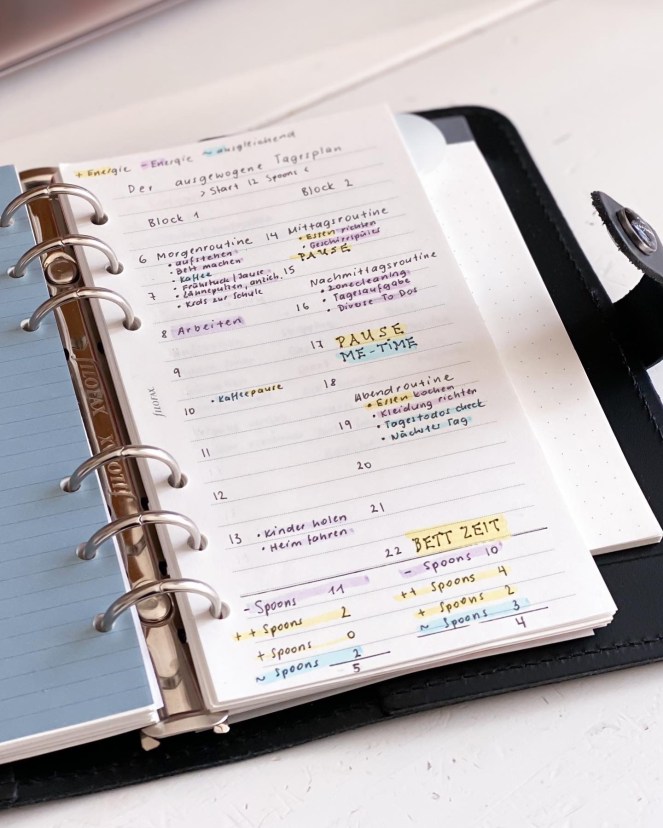 + Energie - Energie ~ ausgleichend
Der ausgewogene Tagesplan
> Start 12 Spoons <
Block 1
6 Morgenroutine
• aufstehen
• Bett machen
• Kaffee
• Frühstück | Jause
7 • Zähneputzen, anzieh.
• Kids zur Schule
8 Arbeiten
9
10 • Kaffeepause
11
12
13 • Kinder holen
• Heim fahren
- Spoons 11
++ Spoons 2
+ Spoons 0
~ Spoons 2
5
Block 2
14 Mittagsroutine
• Essen richten
• Geschirrspüler
PAUSE
15 Nachmittagsroutine
• zonecleaning
16 • Tagesaufgabe
• Diverse To Dos
17 PAUSE
ME-TIME
18 Abendroutine
• Essen kochen
• Kleidung richten
19 • Tagestodos check
• Nächster Tag
20
21
22 BETT ZEIT
- Spoons 10
++ Spoons 4
+ Spoons 2
~ Spoons 3
4
filofax
filofax
filofax